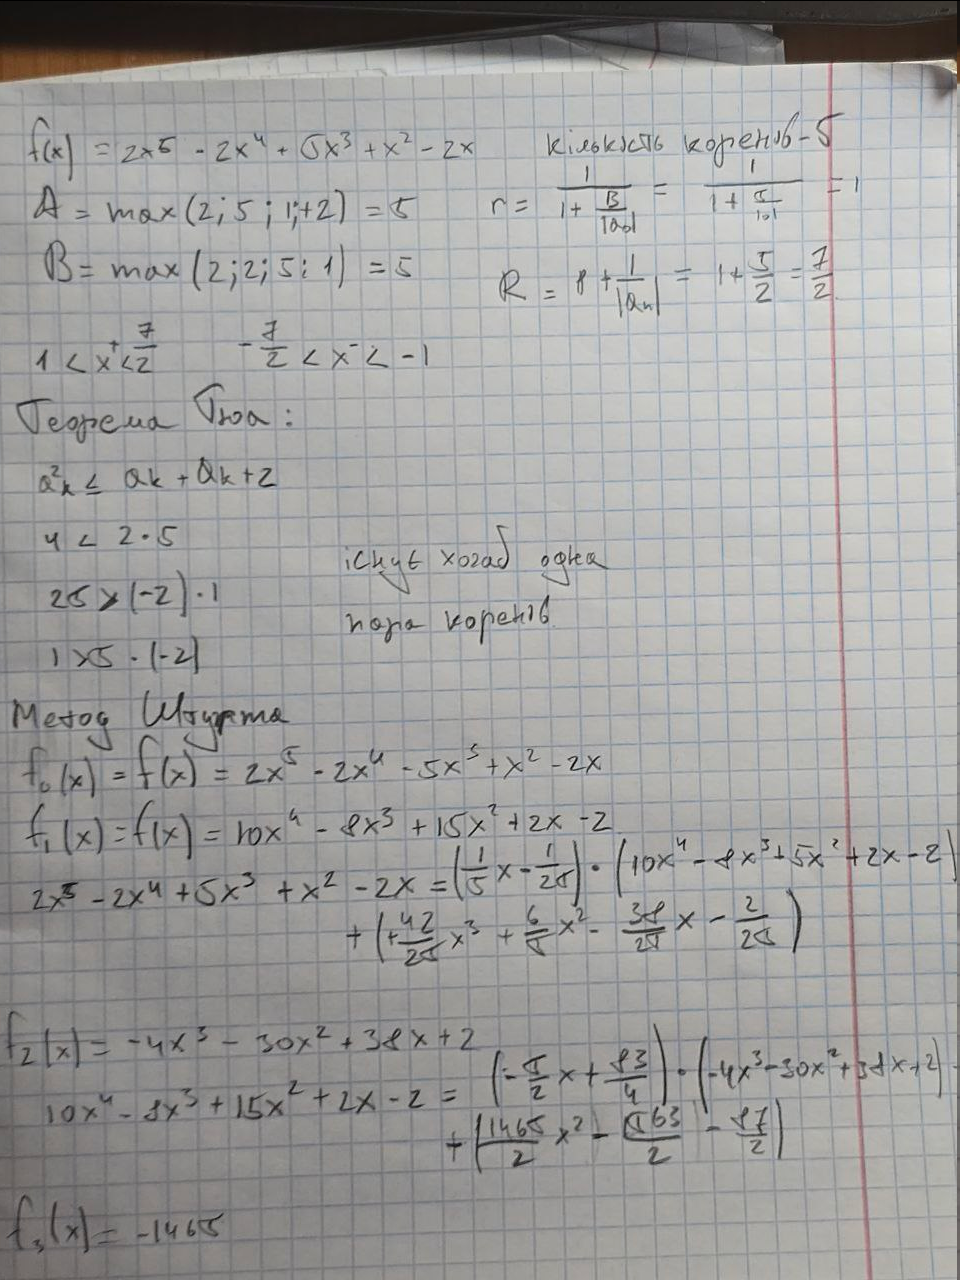 f(x) = 2x⁵ - 2x⁴ + 5x³ + x² - 2x
кількість коренів - 5
A = max(2; 5; 1; +2) = 5
r = 1/(1 + B/|a₀|) = 1/(1 + 5/|0|) = 1
B = max(2; 2; 5; 1) = 5
R = 1 + 1/|aₙ| = 1 + 5/2 = 7/2
1 < x⁺ < 7/2   -7/2 < x⁻ < -1
Теорема Гюа:
a²k ≤ ak + ak+2
4 < 2·5
25 > (-2)·1
1 > 5·(-2)
існує хочаб одна
пара коренів
Метод Штурма
f₀(x) = f(x) = 2x⁵ - 2x⁴ - 5x³ + x² - 2x
f₁(x) = f(x) = 10x⁴ - 8x³ + 15x² + 2x - 2
2x⁵ - 2x⁴ + 5x³ + x² - 2x = (1/5x - 1/25)·(10x⁴ - 8x³ + 5x² + 2x - 2)
+ (+42/25x³ + 6/5x² - 38/25x - 2/25)
f₂(x) = -4x³ - 30x² + 38x + 2
10x⁴ - 8x³ + 15x² + 2x - 2 = (-5/2x + 83/4)·(-4x³ - 30x² + 38x + 2)
+ (1465/2x² - 563/2 - 87/2)
f₃(x) = -1465